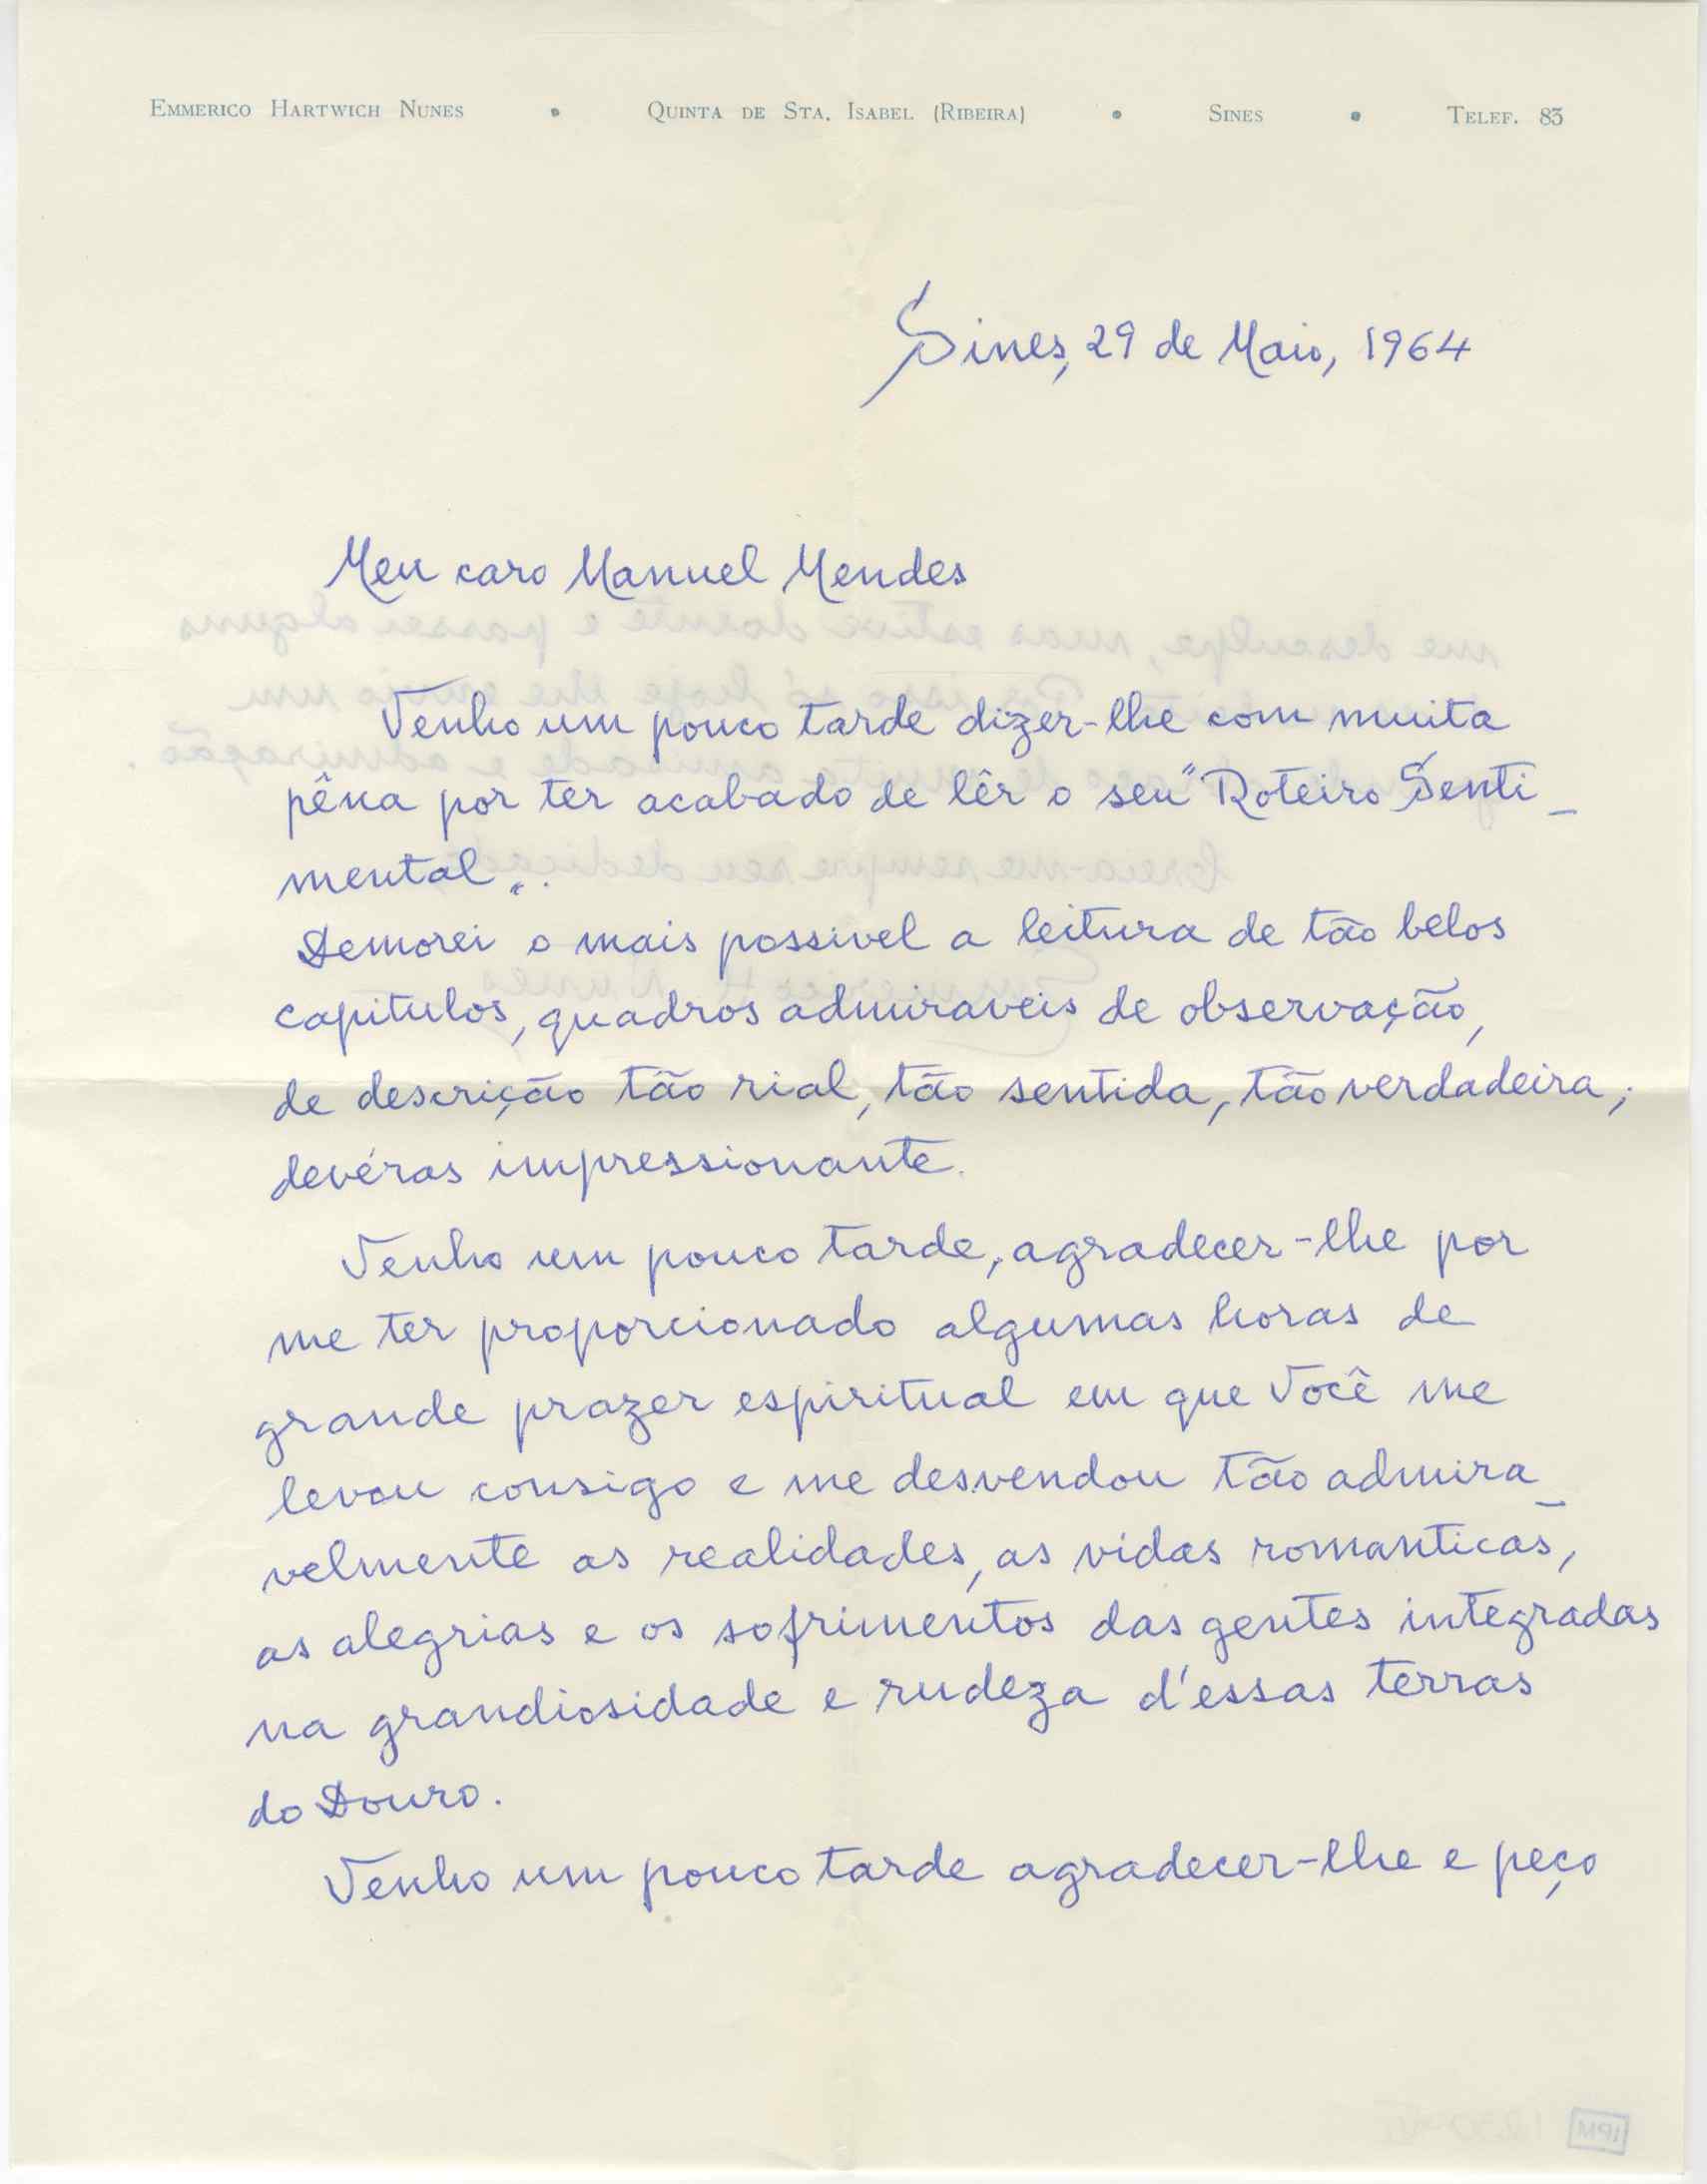 EMMERICO HARTWICH NUNES • QUINTA DE STA. ISABEL (RIBEIRA) • SINES • TELEF. 83
Sines, 29 de Maio, 1964
Meu caro Manuel Mendes
Venho um pouco tarde dizer-lhe com muita
pêna por ter acabado de lêr o seu "Roteiro Senti-
mental".
Demorei o mais possivel a leitura de tão belos
capitulos, quadros admiraveis de observação,
de descrição tão rial, tão sentida, tão verdadeira;
devéras impressionante.
Venho um pouco tarde, agradecer-lhe por
me ter proporcionado algumas horas de
grande prazer espiritual em que Você me
levou consigo e me desvendou tão admira-
velmente as realidades, as vidas romanticas,
as alegrias e os sofrimentos das gentes integradas
na grandiosidade e rudeza d'essas terras
do Douro.
Venho um pouco tarde agradecer-lhe e peço
me desculpe, mas estive doente e passei alguns
Por isso só hoje lhe envio um
de muita amisade e admiração.
Creia-me sempre seu dedicado
Emmerico H. Nunes
IPM